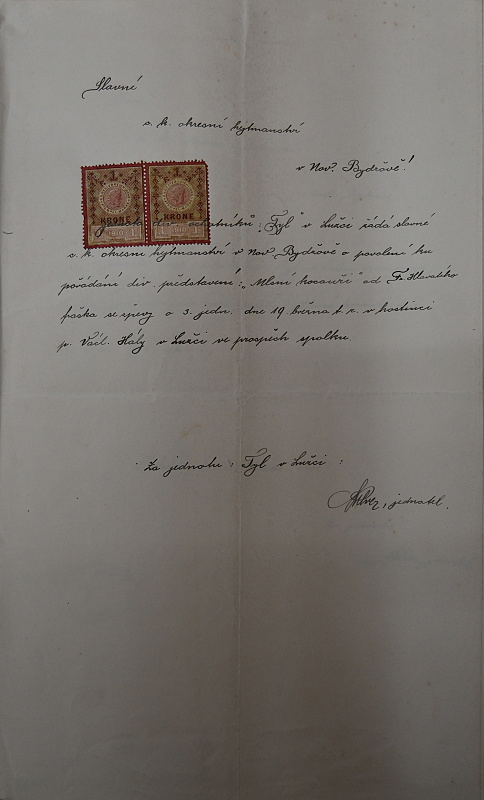 Slavné
c. k. okresní hejtmanství
v Nov. Bydžově!
1
1
KRONE
KRONE
1910
1910
Jednota div. ochotníků „Tyl" v Lužci žádá slavné
c. k. okresní hejtmanství v Nov Bydžově o povolení ku
pořádání div. představení: „Mlsní kocouři" od F.
fraška se zpěvy o 3. jedn. dne 19 března t. r. v hostinci
p. Václ. Hály v Lužci ve prospěch spolku.
Za jednotu: Tyl v Lužci:
, jednatel.